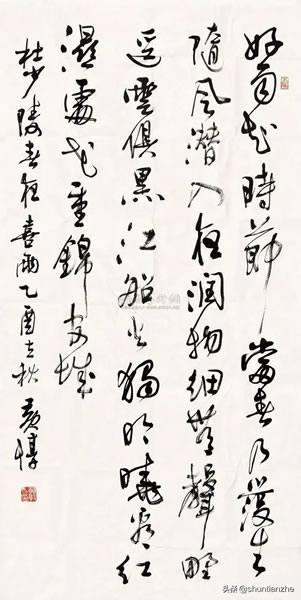 好雨知時節當春乃發生
隨風潛入夜潤物細無聲野
逕雲俱黑江船火獨明曉看紅
濕處花重錦官城
杜少陵春夜喜雨乙酉立秋黃惇
头条 @shuntianzhe